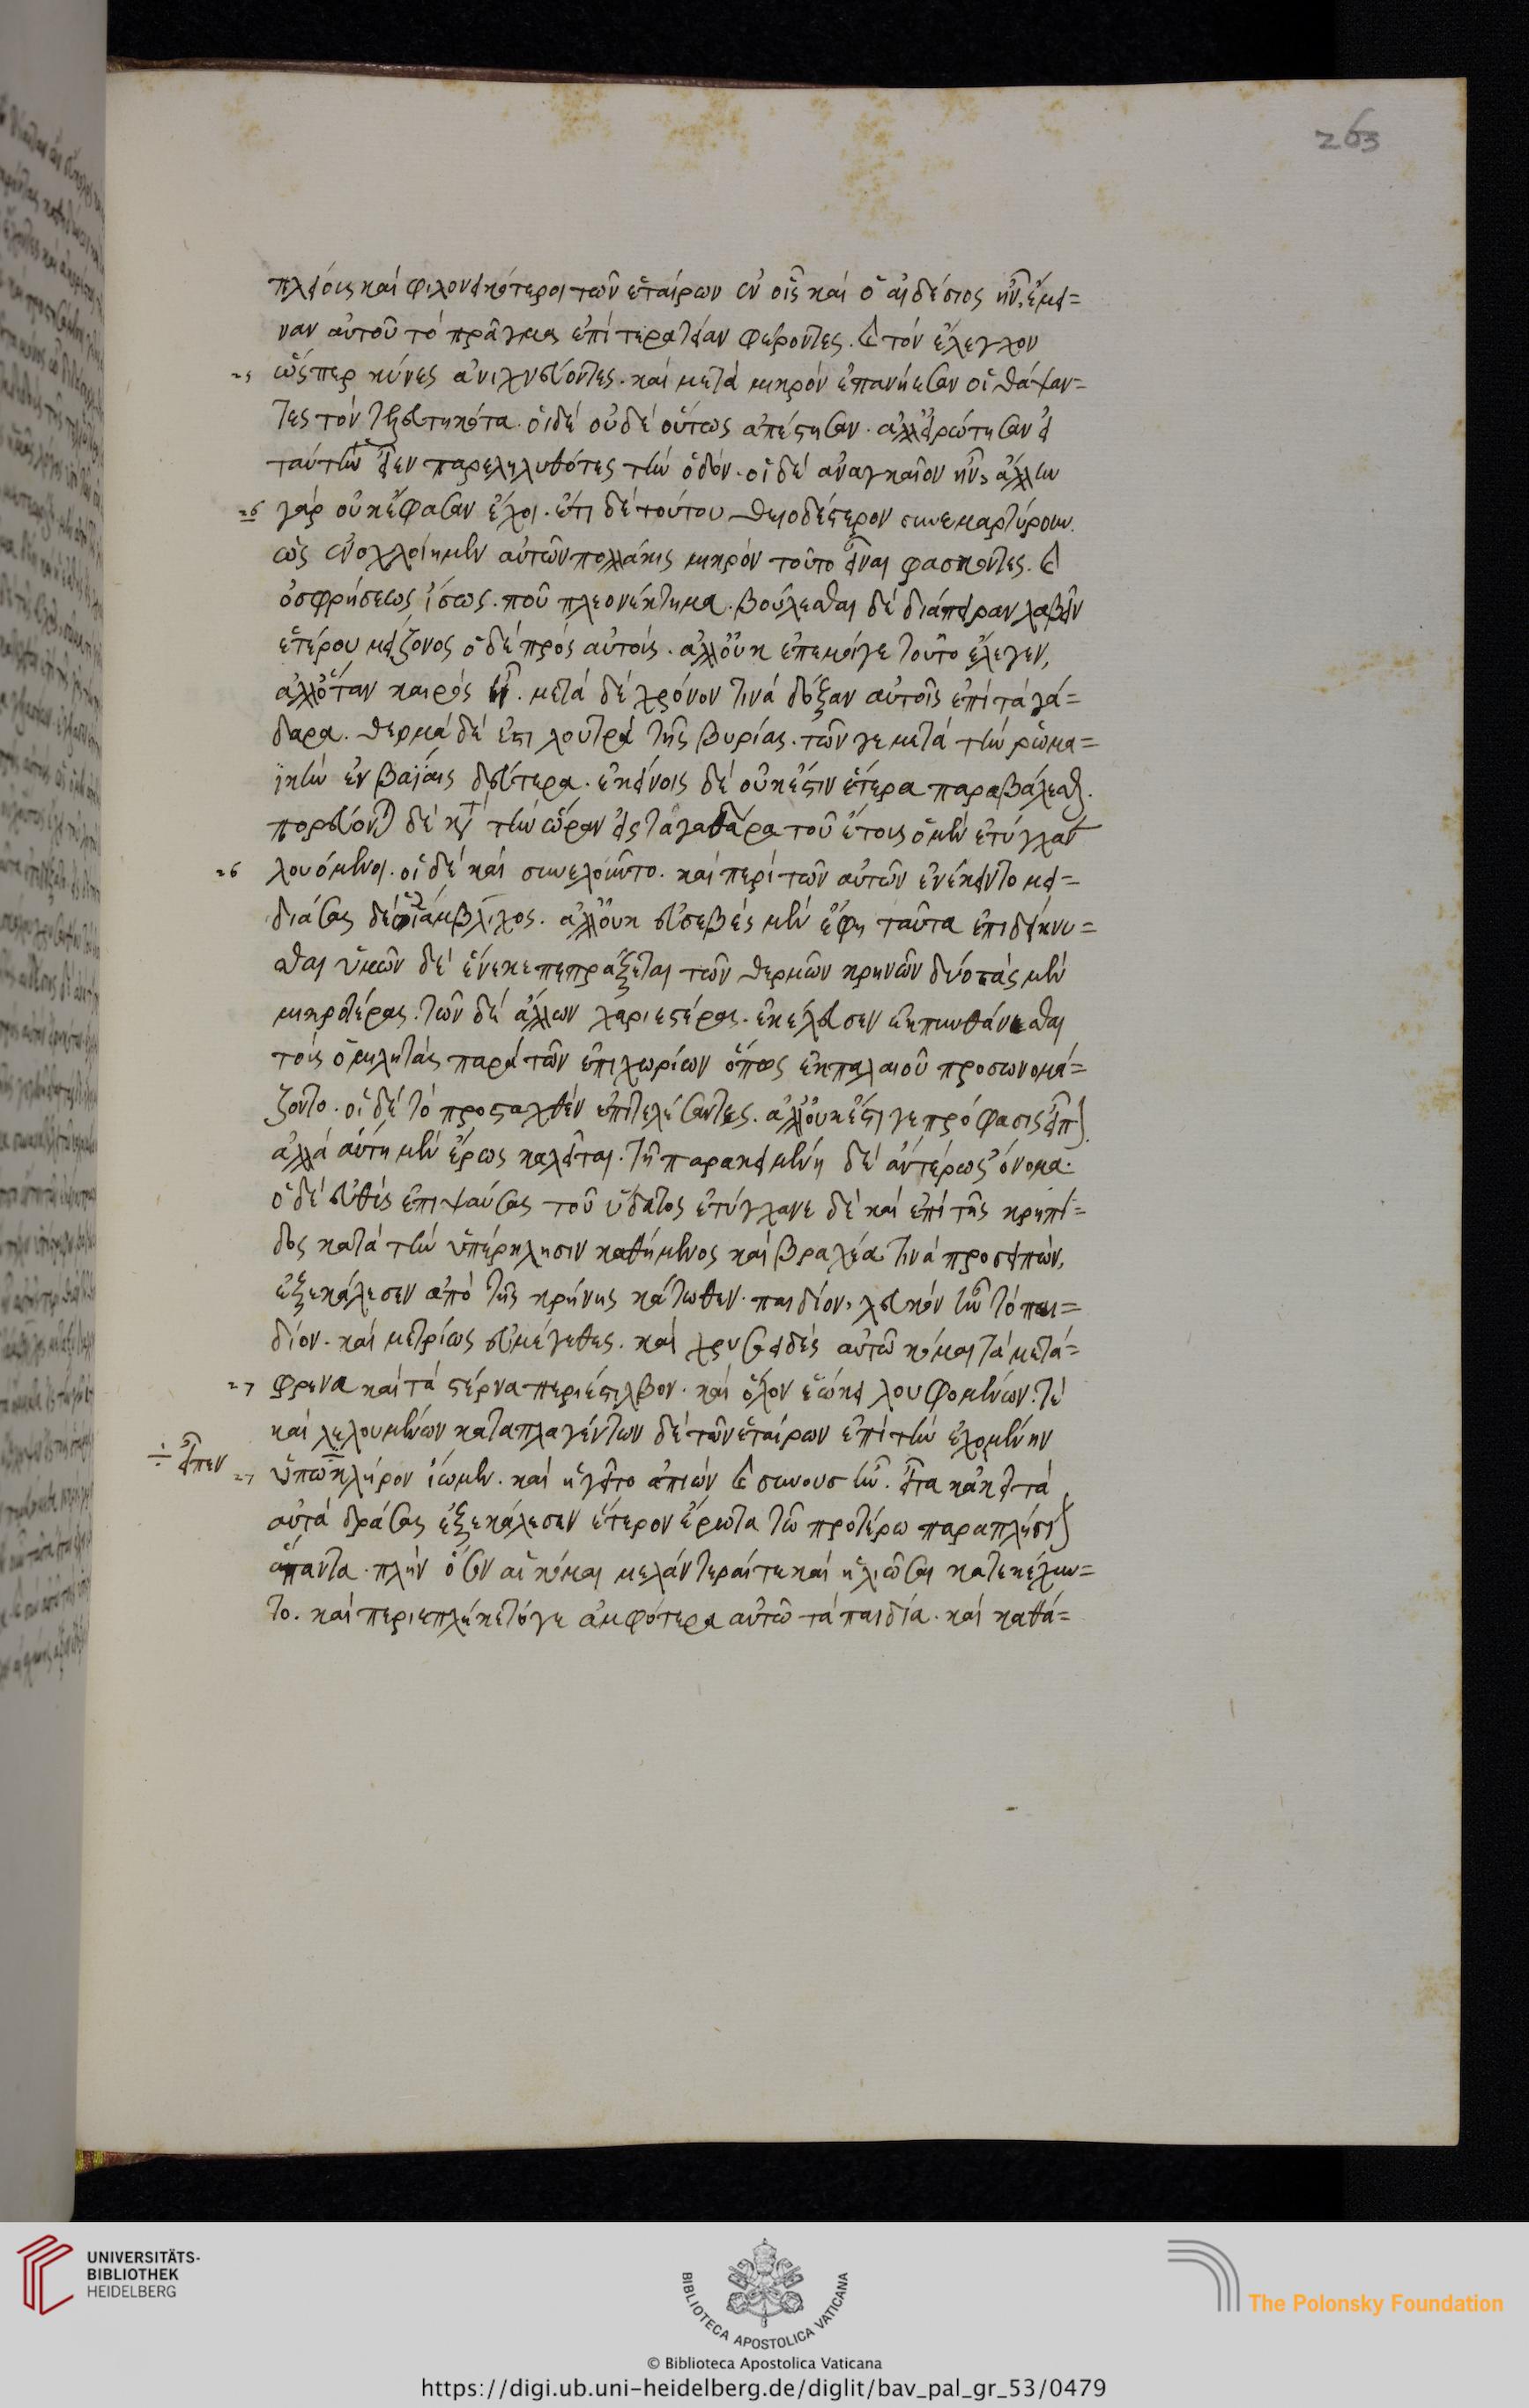 263
πλείους καὶ φιλονεικότεροι τῶν ἑταίρων ἐν οἷς καὶ ὁ αἰδέσιος ἦν, ἔμει=
ναν αὐτοῦ τὸ πρᾶγμα ἐπὶ τερατείαν φέροντες. καὶ τὸν ἔλεγχον
25 ὥσπερ κύνες ἀνιχνεύοντες. καὶ μετὰ μικρὸν ἐπανήεσαν οἱ θάψαν=
τες τὸν τετελευτηκότα. οἱ δὲ οὐδὲ οὕτως ἀπέστησαν. ἀλλ' ἠρώτησαν εἰ
ταύτην εἶεν παρεληλυθότες τὴν ὁδόν. οἱ δὲ ἀναγκαῖον ἦν, ἄλλην
26 γὰρ οὐκ ἔφασαν ἔχοι. ἔτι δὲ τούτου θειοδέστερον συνεμαρτύρουν.
ὡς ἐνοχλοίημεν αὐτῶν πολλάκις μικρὸν τοῦτο εἶναι φάσκοντες. καὶ
ὀσφρήσεως ἴσως. που πλεονέκτημα. βούλεσθαι δὲ διάπειραν λαβεῖν
ἑτέρου μείζονος ὁ δὲ πρὸς αὐτοὺς. ἀλλ' οὐκ ἐπ' ἐμοί γε τοῦτο ἔλεγεν,
ἀλλ' ὅταν καιρὸς ᾖ. μετὰ δὲ χρόνον τινὰ δόξαν αὐτοῖς ἐπὶ τὰ γά=
δαρα. θερμὰ δέ ἐστι λουτρὰ τῆς συρίας. τῶν γε μετὰ τὴν ῥωμα=
ϊκὴν ἐν βαΐαις δεύτερα. ἐκείνοις δὲ οὐκ ἔστιν ἕτερα παραβάλεσθαι.
πορεύονται δὲ κατὰ τὴν ὥραν εἰς τὰ γάδαρα τοῦ ἔτους ὁ μὲν ἐτύγχανε
26 λουόμενος. οἱ δὲ καὶ συνελοῦντο. καὶ περὶ τῶν αὐτῶν ἐνέκειντο μει=
διάσας δὲ ὁ ἰάμβλιχος. ἀλλ' οὐκ εὐσεβὲς μὲν ἔφη ταῦτα ἐπιδείκνυ=
σθαι ὑμῶν δὲ ἕνεκε πεπράξεται τῶν θερμῶν κρηνῶν δύο τὰς μὲν
μικροτέρας. τῶν δὲ ἄλλων χαριεστέρας. ἐκέλευσεν ἐκπυνθάνεσθαι
τοὺς ὁμιλητὰς παρὰ τῶν ἐπιχωρίων ὅπως ἐκπαλαιοῦ προσωνομά=
ζοντο. οἱ δὲ τὸ προσταχθὲν ἐπιτελέσαντες. ἀλλ' οὐκ ἔστι γε πρόφασις εἶπον.
ἀλλὰ αὕτη μὲν ἔρως καλεῖται. τῇ παρακειμένῃ δὲ ἀντέρως ὄνομα.
ὁ δὲ εὐθὺς ἐπιψαύσας τοῦ ὕδατος ἐτύγχανε δὲ καὶ ἐπὶ τῆς κρηπί=
δος κατὰ τὴν ὑπέρκλησιν καθήμενος καὶ βραχέα τινὰ προσειπών,
ἐξεκάλεσεν ἀπὸ τῆς κρήνης κάτωθεν. παιδίον, λευκὸν ἦν τὸ παι=
δίον. καὶ μετρίως εὐμέγεθες. καὶ χρυσοειδὲς αὐτῷ κόμαι τὰ μετά=
27 φρενα καὶ τὰ στέρνα περιέστιλβον. καὶ ὅλον ἐῴκει λουομένων. τε
καὶ λελουμένων καταπλαγέντων δὲ τῶν ἑταίρων ἐπὶ τὴν ἐχομένην
÷ εἶπεν 27 ὑπὼ κλῆρον ἴωμεν. καὶ ἡγεῖτο ἀπιὼν καὶ σύννους ἦν. εἶτα κἀκεῖ τὰ
αὐτὰ δράσας ἐξεκάλεσεν ἕτερον ἔρωτα τῷ προτέρῳ παραπλήσιον
ἅπαντα. πλὴν ὅσον αἱ κόμαι μελάντεραί τε καὶ ἡλιῶσαι κατεκέχυν=
το. καὶ περιεπλέκετό γε ἀμφότερα αὐτῷ τὰ παιδία. καὶ καθά=
UNIVERSITÄTS-
BIBLIOTHEK
HEIDELBERG
BIBLIOTECA APOSTOLICA VATICANA
© Biblioteca Apostolica Vaticana
The Polonsky Foundation
https://digi.ub.uni-heidelberg.de/diglit/bav_pal_gr_53/0479